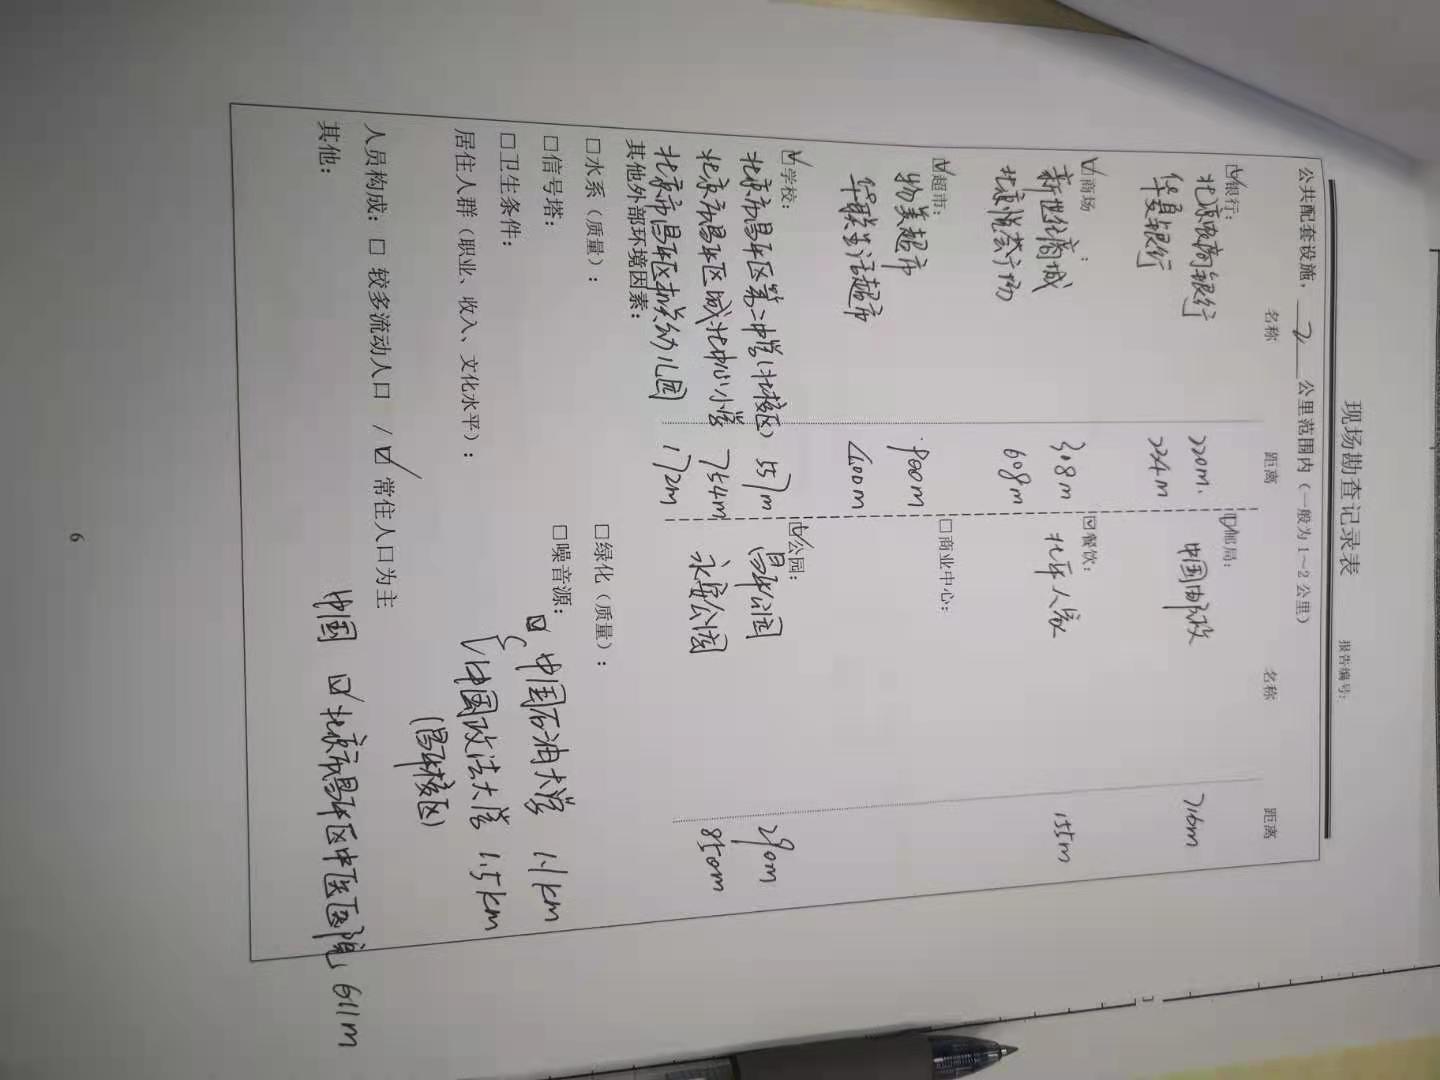 现场勘查记录表
报告编号:
公共配套设施, 2 公里范围内（一般为1~2公里）
名称 距离 名称 距离
☑银行: ☑邮局:
北京农商银行 220m. 中国邮政 716m
华夏银行 224m
☑商场: ☑餐饮:
新世纪商城 308m 北平人家 155m
北京悦荟广场 608m
☑超市: □商业中心:
物美超市 900m
华联生活超市 400m
☑学校: ☑公园:
北京市昌平区第二中学(北校区) 557m 昌平公园 290m
北京市昌平区城北中心小学 754m 永安公园 850m
北京市昌平区机关幼儿园 172m
其他外部环境因素:
□水系（质量）: □绿化（质量）:
□信号塔: □噪音源:
☑ 中国石油大学 1.1km
□卫生条件:
中国政法大学 1.5km
(昌平校区)
居住人群（职业、收入、文化水平）:
人员构成: □ 较多流动人口 / ☑ 常住人口为主
其他:
中国 ☑ 北京市昌平区中医医院 611m
6